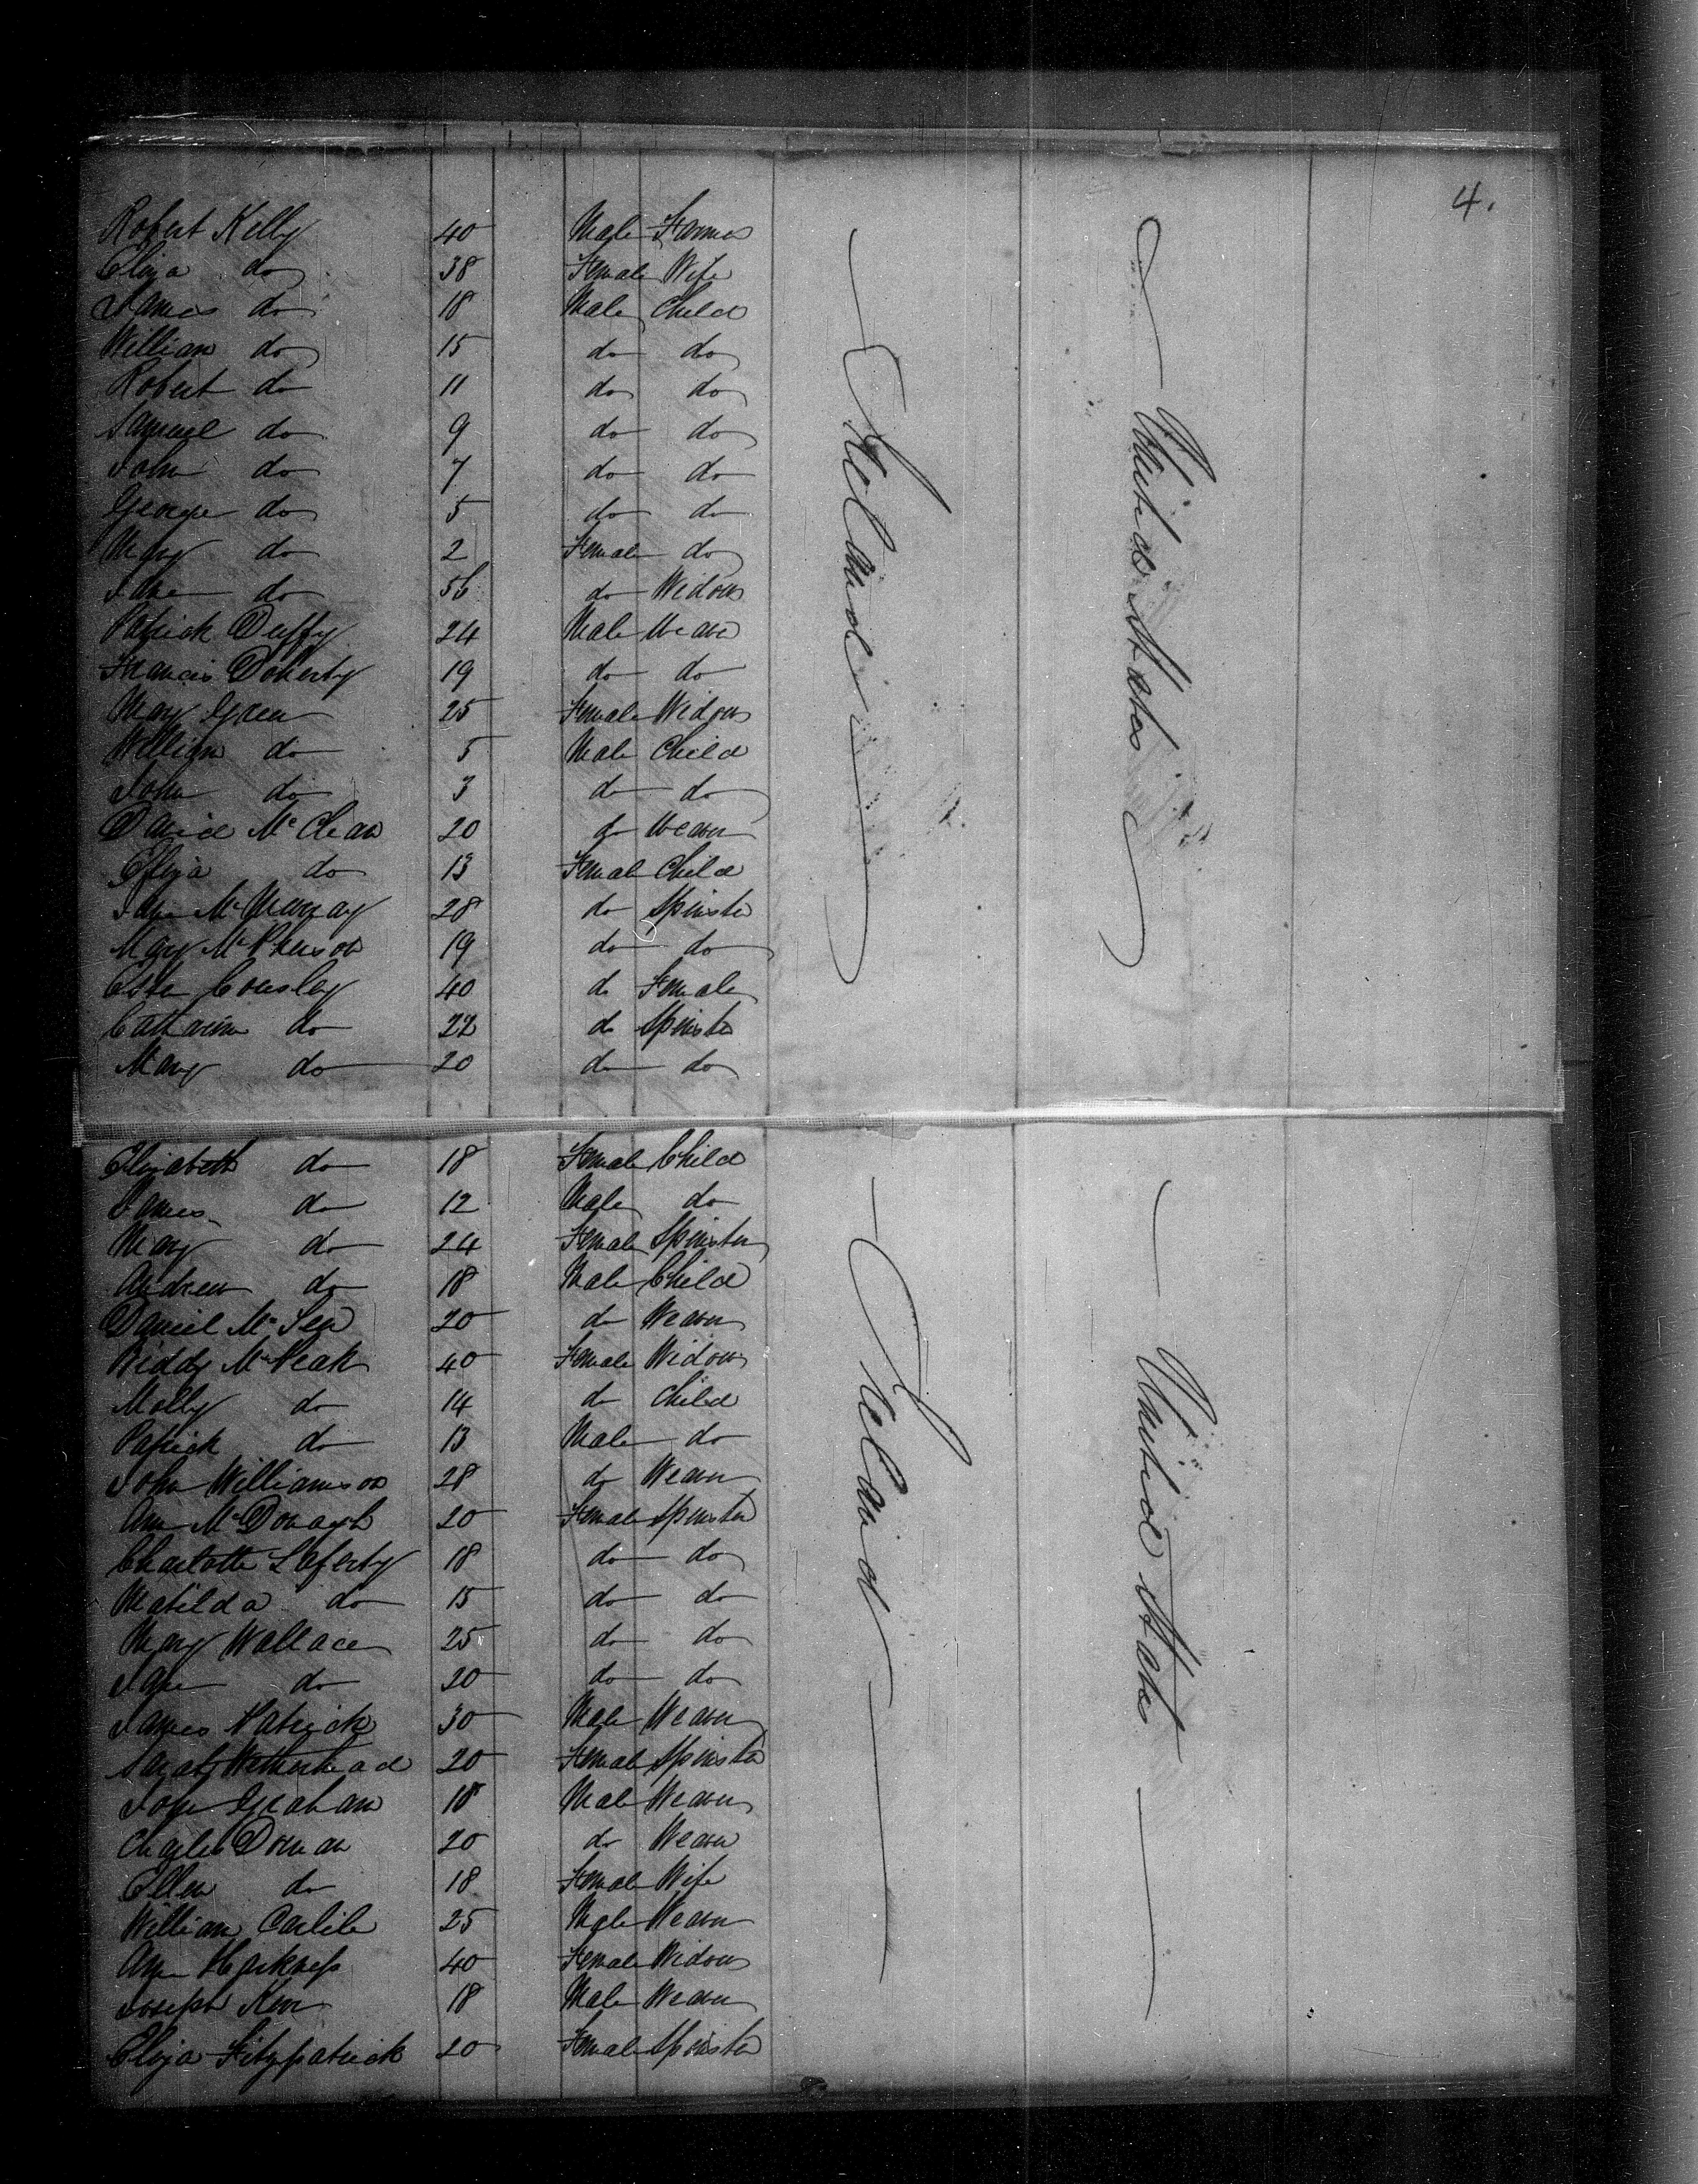 4.
Robert Kelly 40 Male Farmer
Eliza do 38 Female Wife
James do 18 Male Child
William do 15 do do
Robert do 11 do do
Samuel do 9 do do
John do 7 do do
George do 5 do do
Mary do 2 Female do
Jane do 56 do Widow
Patrick Duffy 24 Male Weaver
Francis Doherty 19 do do
Mary Green 25 Female Widow
William do 5 Male Child
John do 3 do do
David McClean 20 do Weaver
Eliza do 13 Female Child
Jane McMurray 28 do Spinster
Mary McPherson 19 do do
Ireland
United States
Esther Cousley 40 do Female
Catharine do 22 do Spinster
Mary do 20 do do
Elizabeth do 18 Female Child
James do 12 Male do
Mary do 24 Female Spinster
Andrew do 18 Male Child
Daniel 20 do Weaver
Biddy McPeak 40 Female Widow
Molly do 14 do Child
Patrick do 13 Male do
John Williamson 28 do Weaver
Ann McDonagh 20 Female Spinster
Charlotte Laferty 18 do do
Matilda do 15 do do
Mary Wallace 25 do do
Jane do 20 do do
James Patrick 30 Male Weaver
Sarah Wetherhead 20 Female Spinster
John Graham 18 Male Weaver
Charles Dornan 20 do Weaver
Ellen do 18 Female Wife
William Carlile 25 Male Weaver
Ann Harkness 40 Female Widow
Joseph Kerr 18 Male Weaver
Eliza Fitzpatrick 20 Female Spinster
Ireland
United States